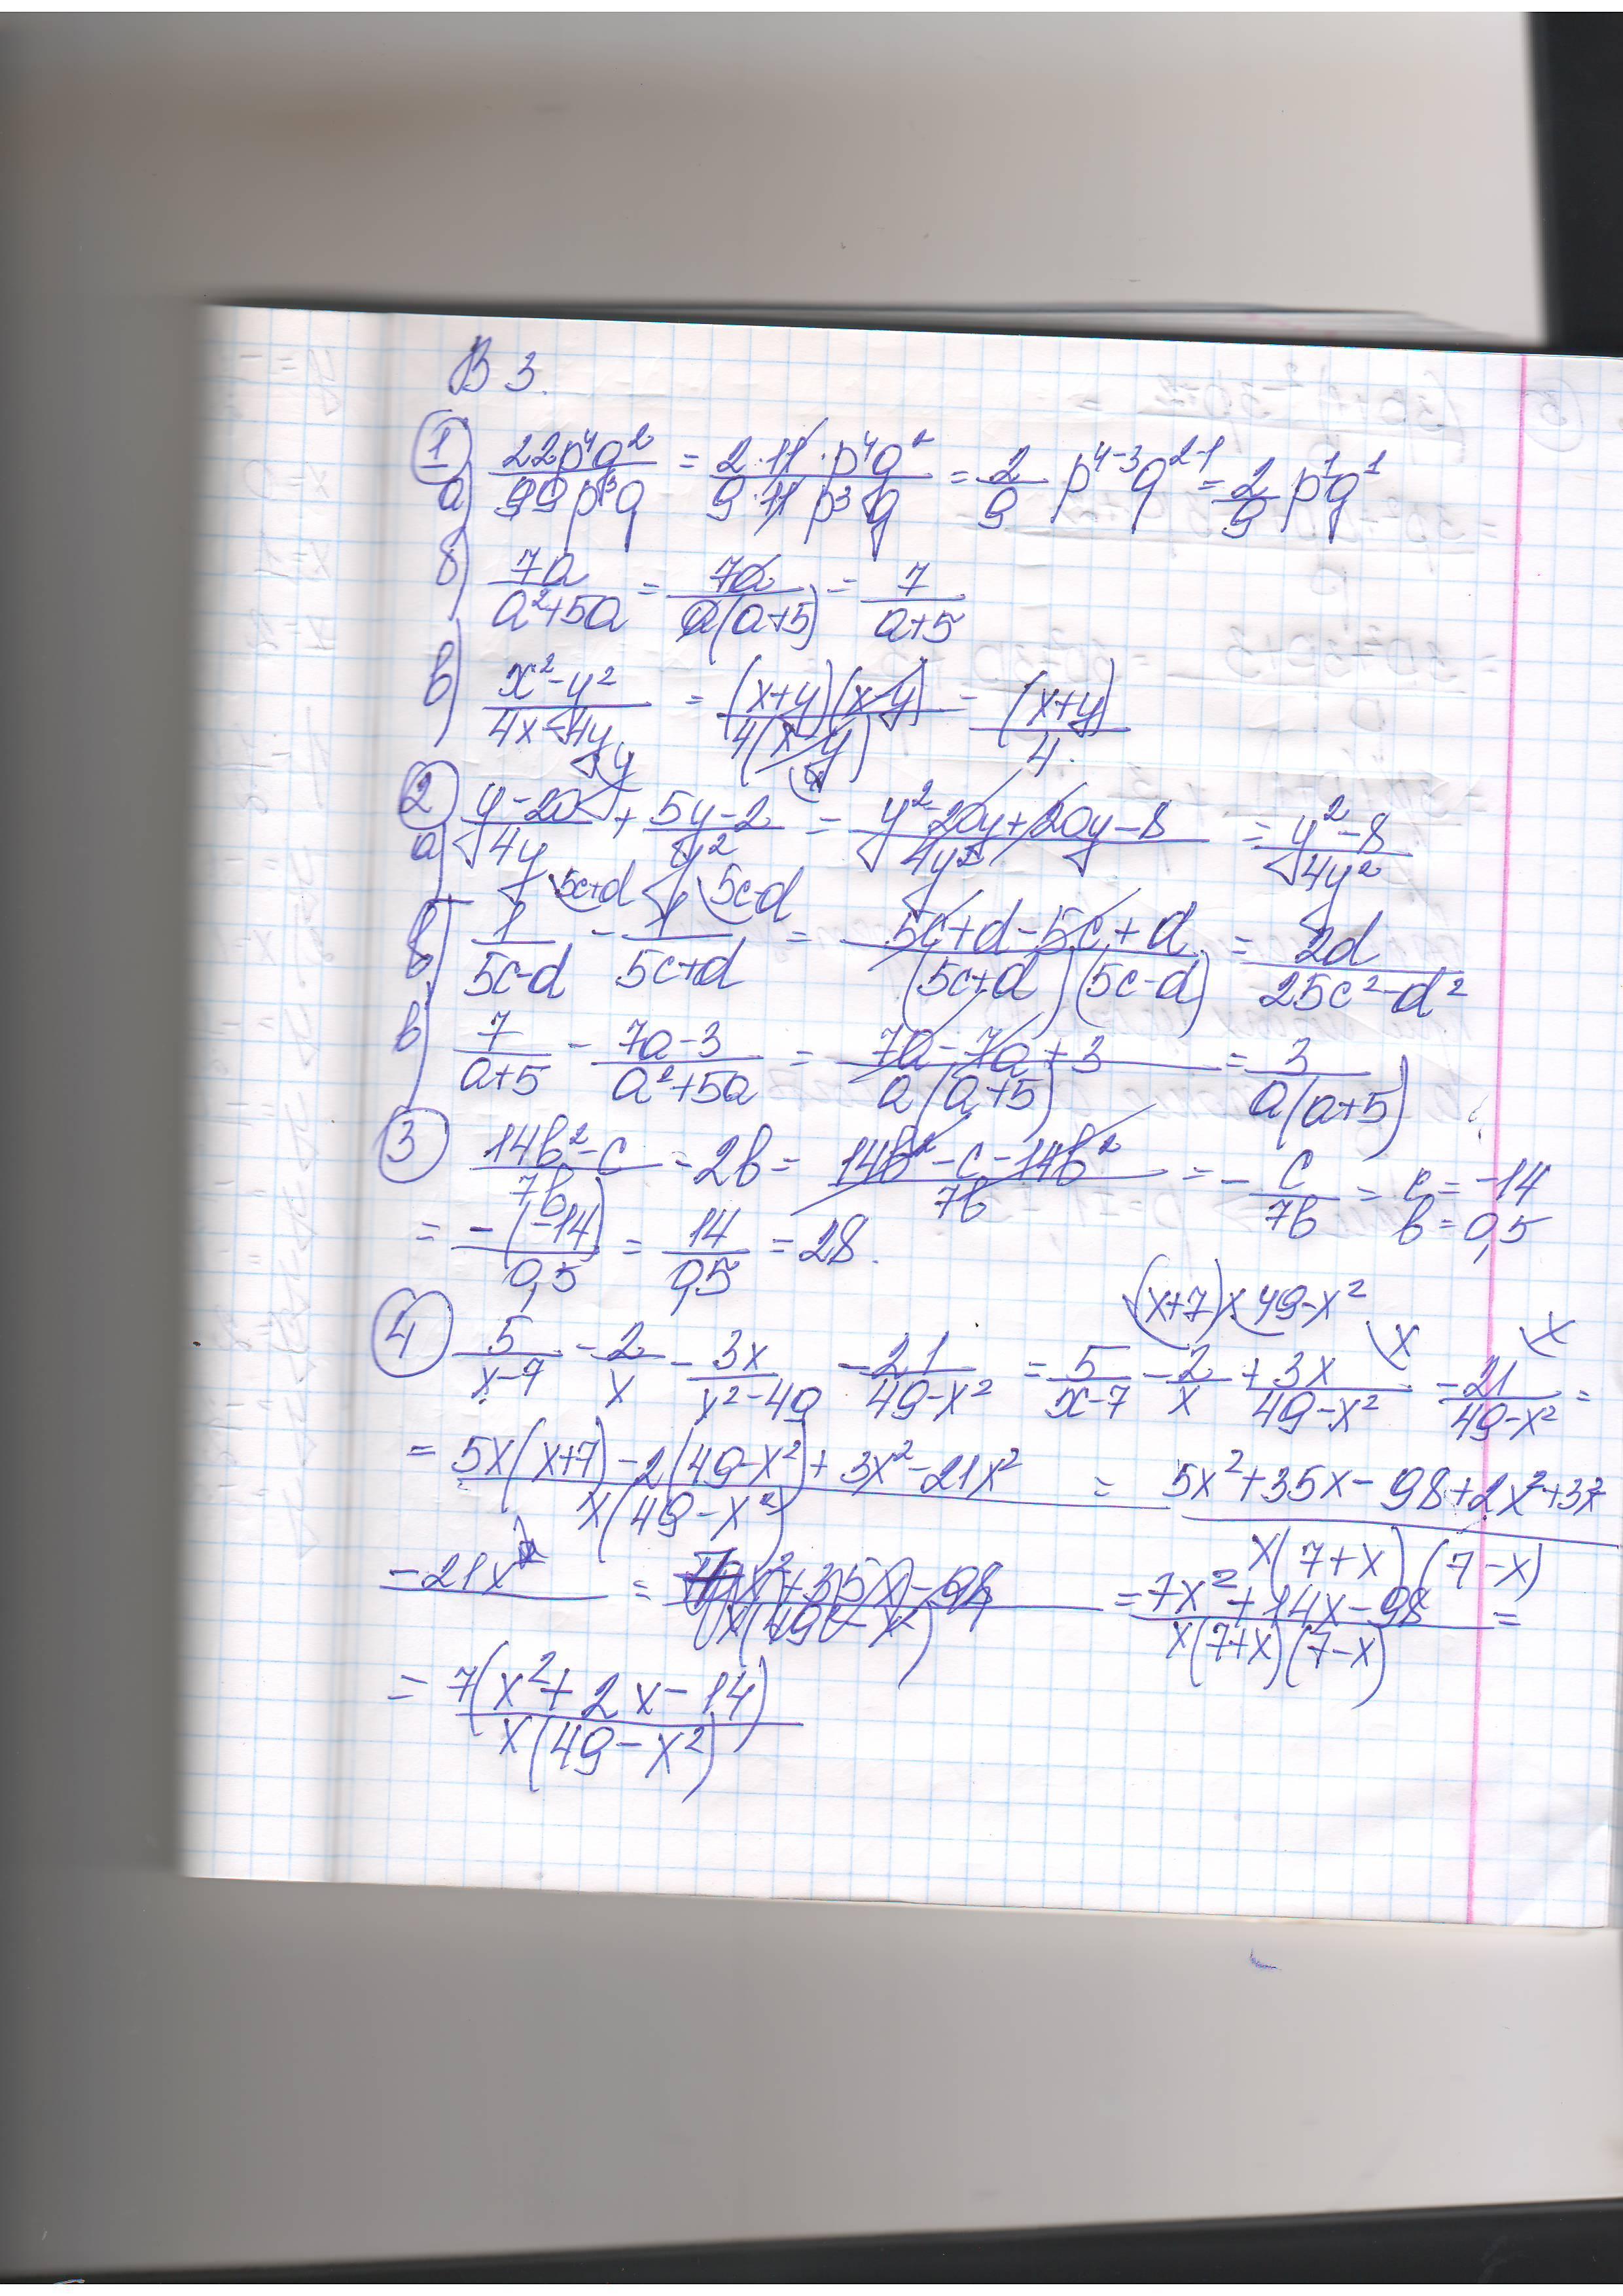 В 3.
① а) 22p⁴q²/99p³q = 2·11·p⁴q²/9·11p³q = 2/9 p⁴⁻³q²⁻¹ = 2/9 p¹q¹
б) 7a/a²+5a = 7a/a(a+5) = 7/a+5
в) x²-y²/4x-4y = (x+y)(x-y)/4(x-y) = (x+y)/4.
② а) y-20/4y + 5y-2/y² = y²-20y+20y-8/4y² = y²-8/4y²
б) 1/5c-d - 1/5c+d = 5c+d-5c+d/(5c+d)(5c-d) = 2d/25c²-d²
в) 7/a+5 - 7a-3/a²+5a = 7a-7a+3/a(a+5) = 3/a(a+5)
③ 14b²-c/7b - 2b = 14b²-c-14b²/7b = -c/7b = c=-14 b=0,5
= -(-14)/0,5 = 14/0,5 = 28.
④ 5/x-7 - 2/x - 3x/x²-49 - 21/49-x² = 5/x-7 - 2/x + 3x/49-x² - 21/49-x² =
= 5x(x+7)-2(49-x²)+3x²-21x²/x(49-x²) = 5x²+35x-98+2x²+3x²
-21x = 7x²+14x-98/x(7+x)(7-x) =
= 7(x²+2x-14)/x(49-x²)